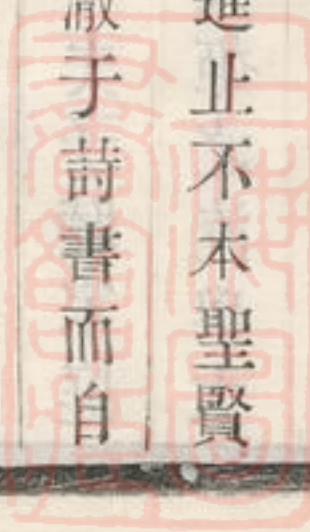 進止不本聖賢
澈于詩書而自